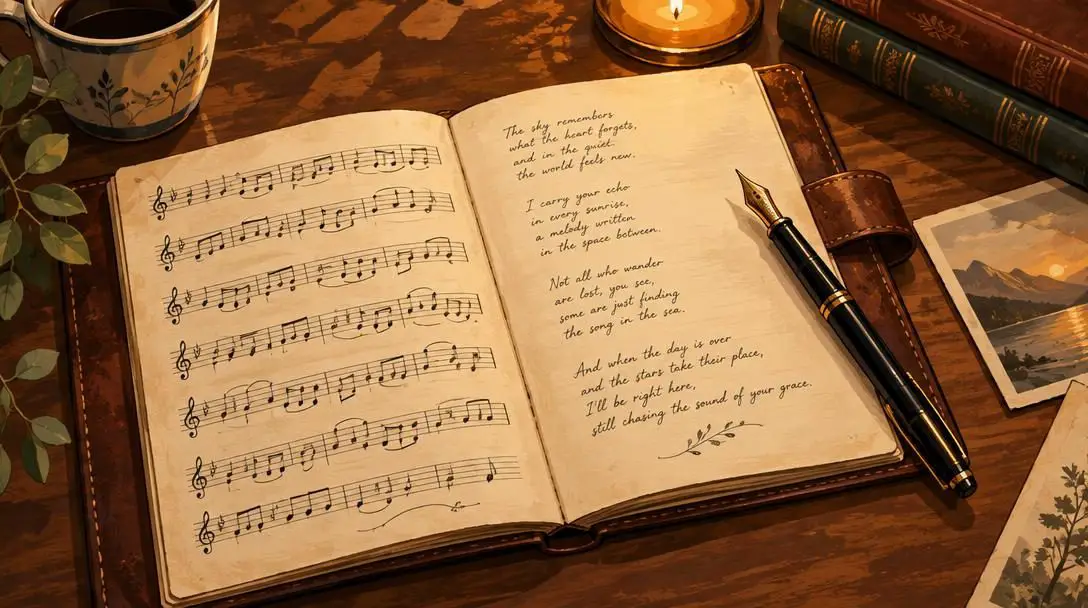 The sky remembers
what the heart forgets,
and in the quiet
the world feels new.
I carry your echo
in every sunrise,
a melody written
in the space between.
Not all who wander
are lost, you see,
some are just finding
the song in the sea.
And when the day is over
and the stars take their place,
I'll be right here,
still chasing the sound of your grace.